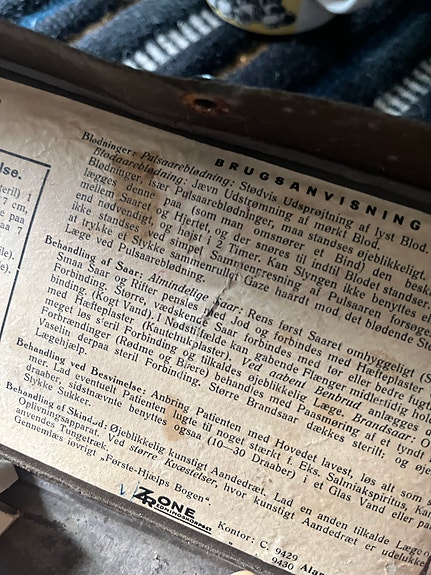 BRUGSANVISNING
Blødninger: Pulsaareblødning: Stødvis Udsprøjtning af lyst Blod.
Blodaareblødning: Jævn Udstrømning af mørkt Blod.
Blødninger, især Pulsaareblødninger, maa standses øjeblikkeligt.
lægges denne paa (som man omsnører et Bind) den besk
mellem Saaret og Hjertet, og der snøres til indtil Blodet standser.
end nødvendigt, og højst i 2 Timer. Kan Slyngen ikke benyttes el
ikke standses ved simpel Sammenpresning af Pulsaaren forsøge
at trykke et Stykke sammenrullet Gaze haardt mod det blødende Ste
Læge ved Pulsaareblødning.
Behandling af Saar: Almindelige Saar: Rens først Saaret omhyggeligt (S
Smaa Saar og Rifter pensles med Jod og forbindes med Hæfteplaster
Forbinding. Større, væskende Saar forbindes med tør eller bedre fugt
binding (Kogt Vand). I Nødstilfælde kan gabende Flænger midlertidig hol
med Hæfteplaster (Kautchukplaster). Ved aabent Benbrud anlægges
meget løs steril Forbinding og tilkaldes øjeblikkelig Læge. Brandsaar: O
Forbrændinger (Rødme og Blære) behandles med Paasmøring af et tyndt
Vaselin derpaa steril Forbinding. Større Brandsaar dækkes sterilt, og øje
Lægehjælp.
Behandling ved Besvimelse: Anbring Patienten med Hovedet lavest, løs alt som s
mer. Lad eventuelt Patienten lugte til noget stærkt f. Eks. Salmiakspiritus, kan
draaber, sidstnævnte benyttes ogsaa (10—30 Draaber) i et Glas Vand eller pa
Stykke Sukker.
Behandling af Skindød: Øjeblikkelig kunstigt Aandedræt. Lad en anden tilkalde Læge
Oplivningsapparat. Ved større Kvæstelser, hvor kunstigt Aandedræt er udelukke
anvendes Tungetræk.
Gennemlæs iøvrigt „Første-Hjælps Bogen".
ZONE
REDNINGSKORPSET
Kontor: C. 9429
9430
lse.
teril) 1
7 cm.
e paa
aa 7
ile)
le).